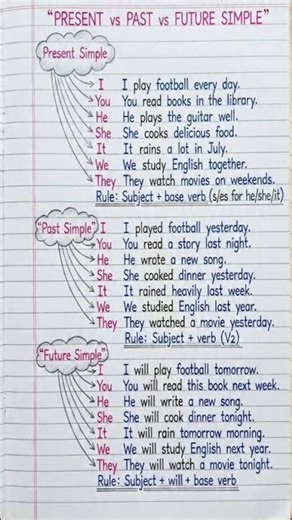 "PRESENT vs PAST vs FUTURE SIMPLE"
Present Simple
I I play football every day.
You You read books in the library.
He He plays the guitar well.
She She cooks delicious food.
It It rains a lot in July.
We We study English together.
They They watch movies on weekends.
Rule: Subject + base verb (s/es for he/she/it)
"Past Simple" I I played football yesterday.
You You read a story last night.
He He wrote a new song.
She She cooked dinner yesterday.
It It rained heavily last week.
We We studied English last year.
They They watched a movie yesterday.
Rule: Subject + verb (V2)
"Future Simple"
I I will play football tomorrow.
You You will read this book next week.
He He will write a new song.
She She will cook dinner tonight.
It It will rain tomorrow morning.
We We will study English next year.
They They will watch a movie tonight.
Rule: Subject + will + base verb